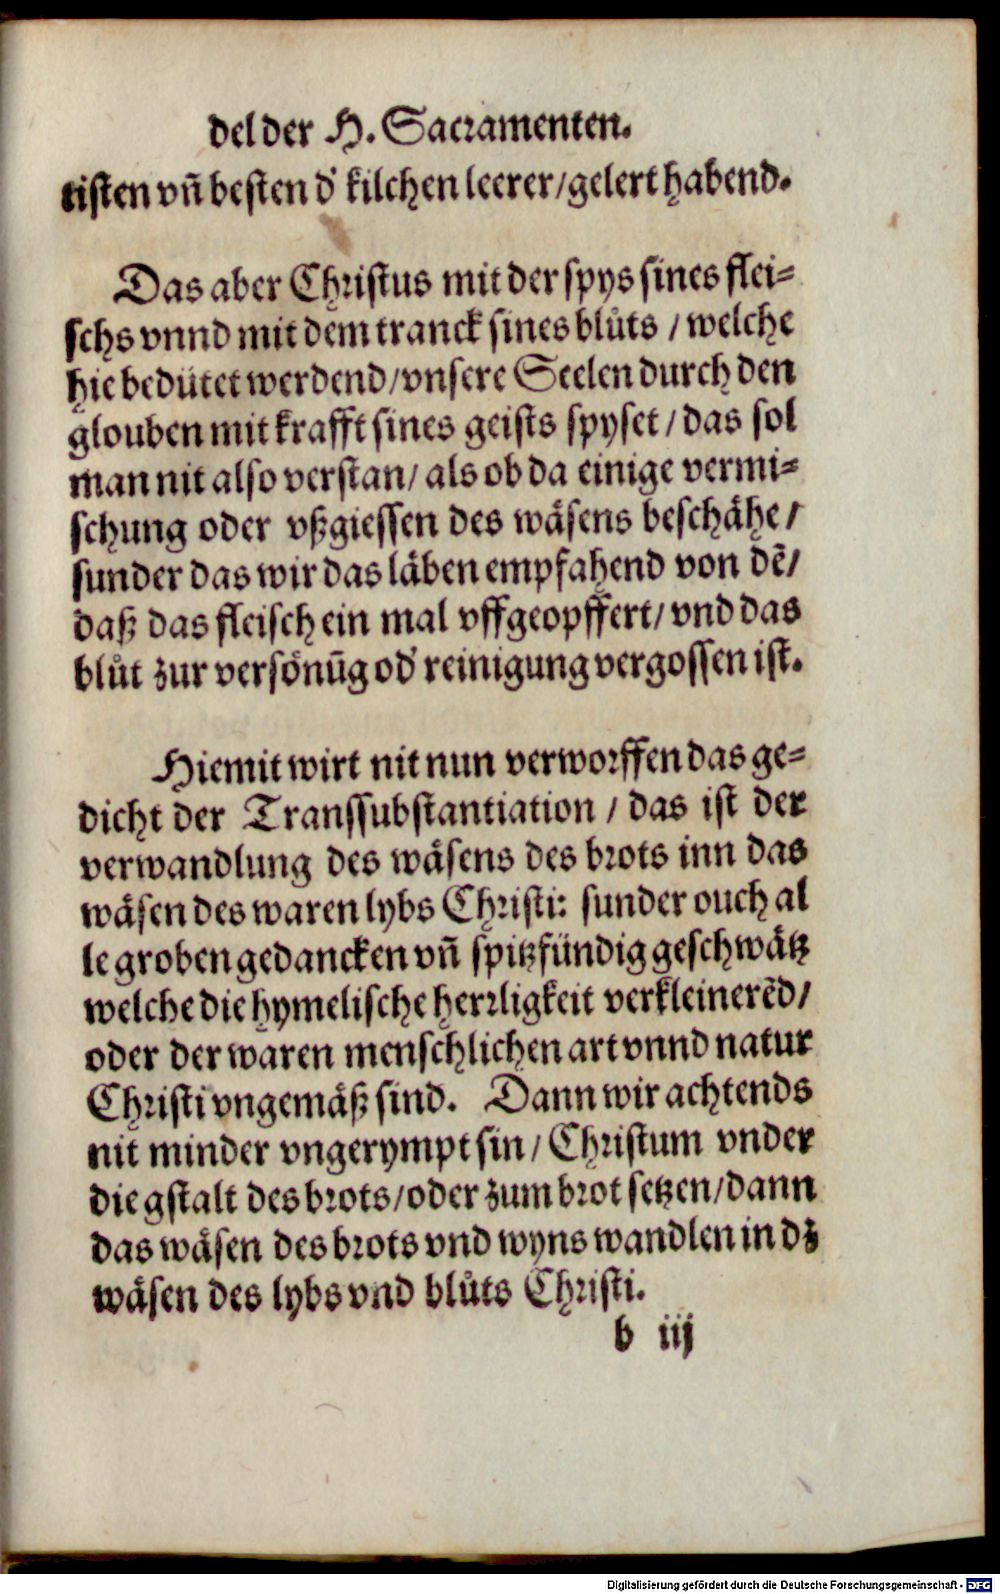 del der H. Sacramenten.
tisten vñ besten d' kilchen leerer/gelert habend.
Das aber Christus mit der spys sines flei=
schs vnnd mit dem tranck sines blůts / welche
hie bedütet werdend/vnsere Seelen durch den
glouben mit krafft sines geists spyset / das sol
man nit also verstan/ als ob da einige vermi=
schung oder vßgiessen des wäsens beschähe/
sunder das wir das läben empfahend von dē/
daß das fleisch ein mal vffgeopffert/ vnd das
blůt zur versönūg od' reinigung vergossen ist.
Hiemit wirt nit nun verworffen das ge=
dicht der Transsubstantiation / das ist der
verwandlung des wäsens des brots inn das
wäsen des waren lybs Christi: sunder ouch al
le groben gedancken vñ spitzfündig geschwätz
welche die hymelische herrligkeit verkleinerēd/
oder der waren menschlichen art vnnd natur
Christi vngemäß sind. Dann wir achtends
nit minder vngerympt sin/ Christum vnder
die gstalt des brots/oder zum brot setzen/dann
das wäsen des brots vnd wyns wandlen in dz
wäsen des lybs vnd blůts Christi.
b iij
Digitalisierung gefördert durch die Deutsche Forschungsgemeinschaft - DFG